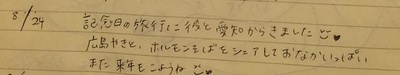 8/24 記念日の旅行に彼と愛知からきました♥
広島やきと、ホルモンそばをシェアしておなかいっぱい
また来年もこようね♥